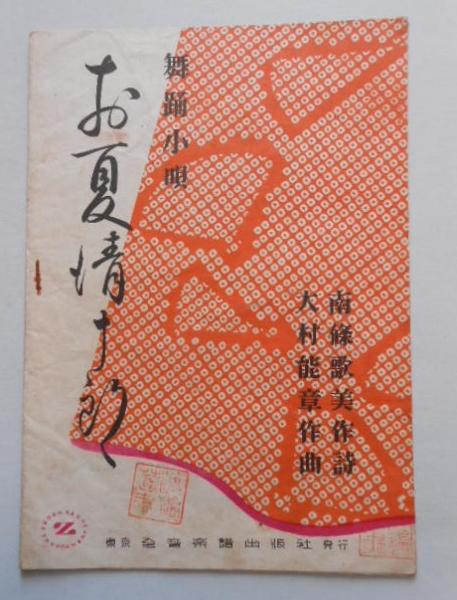 舞踊小唄
お夏清十郎
南條歌美作詩
大村能章作曲
東京 全音楽譜出版社 発行